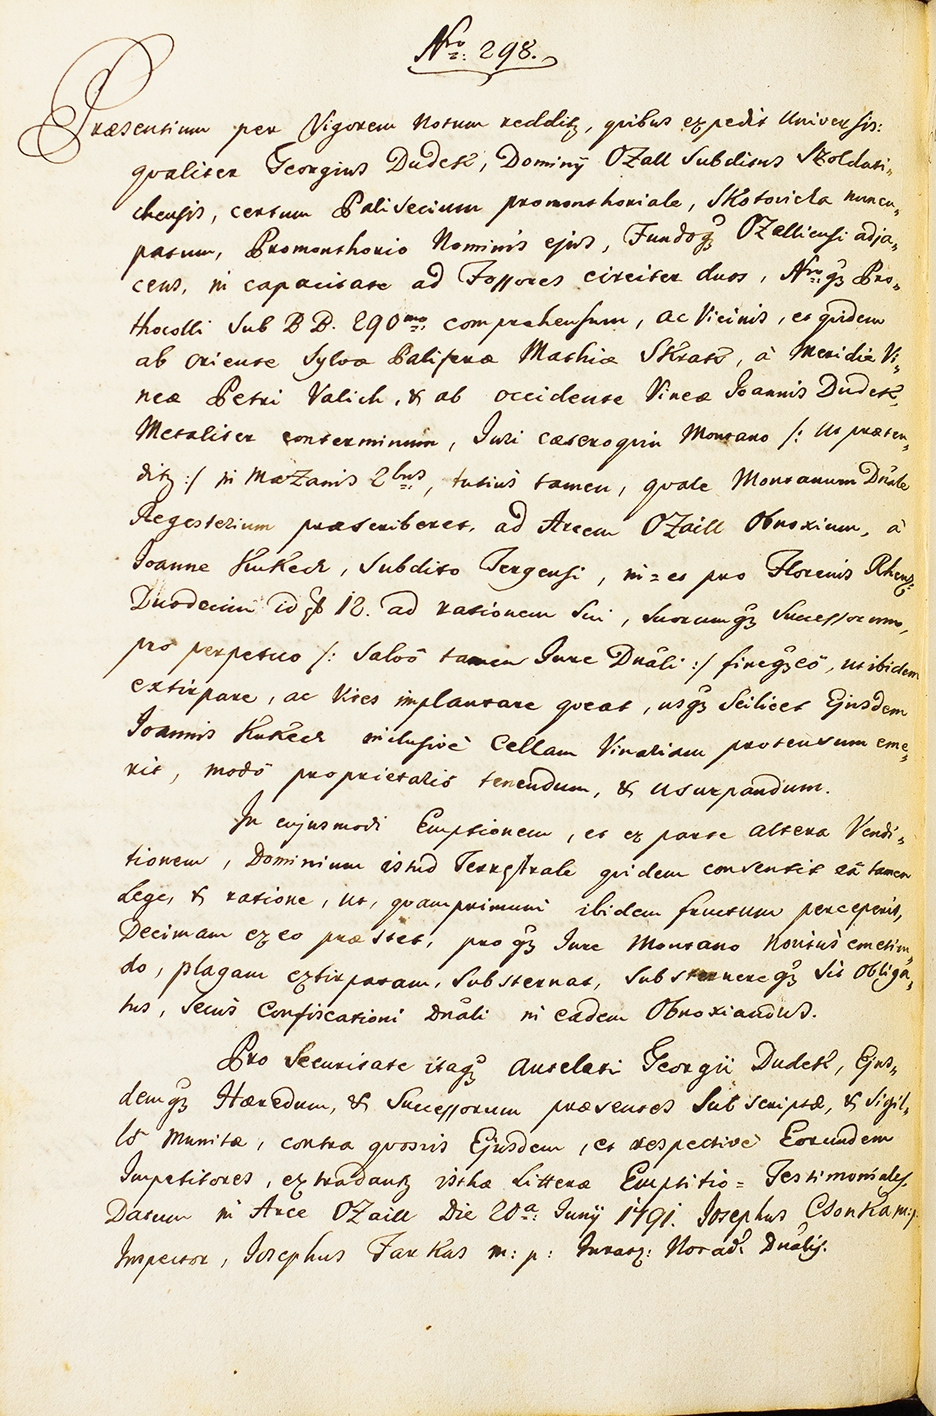 Nro: 298.
Præsentium per Vigorem Notum redditz, quibus expedit Universis:
qvaliter Georgius Dudek, Dominÿ OZall Subditus Szoldati=
chensis, certum Palisecium promonthoriale, Skotovicla nuncu=
patum, Promonthorio Nominis ejus, Fundoqz OZelliensi adja=
cens, in capacitate ad Fossores circiter duos, Nroqz Pro=
thocolli Sub BD. 290mo: comprehensum, ac Vicinis, et qvidem
ab oriente Sylvæ Paliferæ Mathiæ Skrats, à Meridie Vi=
neæ Petri Valich, & ab occidente Vineæ Joannis Dudek,
Metaliter conterminum, Juri cæteroqvin Montano /: ut præten=
ditz :/ in MaZanis 2bus, tutius tamen, qvale Montanum Dnale
Regestrium præscriberet, ad Arcem OZaill Obnoxium, à
Joanne Kukech, Subdito Tergensi, in = et pro Florenis Rhensz
Duodecim id est f 12. ad rationem Sui, suorumqz Successorum,
pro perpetuo /: Salvô tamen Jure Dnali :/ fineqzeô, ut ibidem
extirpare, ac Vites implantare qveat, usqz Scilicet Ejusdem
Joannis Kukech inclusivè Cellam Vinariam protensum eme=
rit, modô proprietariô tenendum, & usurpandum.
In cujusmodi Emptionem, et ex parte altera Vendi=
tionem, Dominium istud Terrestrale qvidem consentit eâ tamen
Lege, & ratione, ut, qvamprimum ibidem fructum perceperit,
Decimam ex eo præstet, proqz Jure Montano Noviùs emetien=
do, plagam extirpatam, Substernat, Substernereqz Sit Obliga=
tus, secùs Confiscationi Dnali in eadem Obnoxiandus.
Pro Securitate itaqz Antelati Georgii Dudek, Ejus=
demqz Hæredum, & Successorum præsentes Subscriptæ, & Sigil=
lô Munitæ, contra qvosvis Ejusdem, et respectivè Eorundem
Impetitores, extradantz isthæ Litteræ Emptitio = Testimoniales.
Datum in Arce OZaill Die 20a: Junÿ 1791. Josephus Csonka m:p:
Inspector, Josephus Farkas m: p: Juratz: Notad: Dnalis.